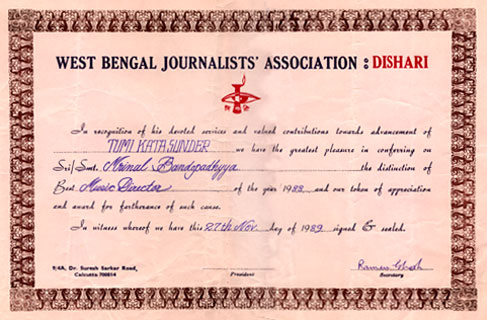 WEST BENGAL JOURNALISTS' ASSOCIATION : DISHARI
In recognition of his devoted services and valued contributions towards advancement of
TUMI KATA SUNDER we have the greatest pleasure in conferring on
Sri/Smt. Mrinal Bandopadhyya the distinction of
Best Music Director of the year 1988 and our token of appreciation
and award for furtherance of such cause.
In witness whereof we have this 27th Nov. day of 1989 signed & sealed.
9/4A, Dr. Suresh Sarkar Road,
Calcutta 700014
President
Secretary